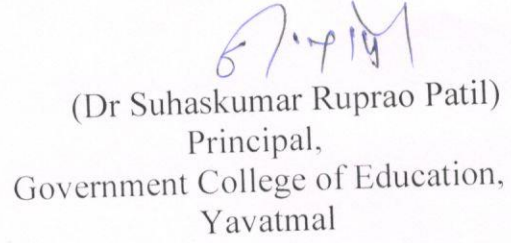 (Dr Suhaskumar Ruprao Patil)
Principal,
Government College of Education,
Yavatmal